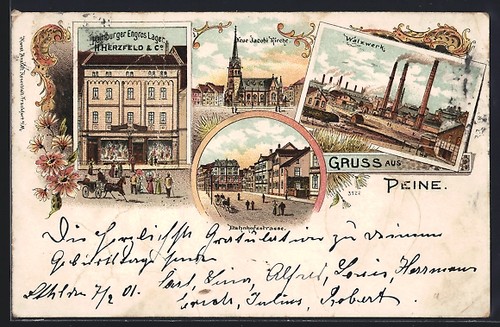 Hamburger Engros Lager
H. HERZFELD & Co.
Neue Jacobi Kirche.
Walzwerk.
Bahnhofstrasse.
GRUSS AUS
PEINE.
Die herzlichste Gratulation zu deinem
Geburtstag
7/2 01.
Carl, Lina, Alfred, Louis, Herrmann
Erich, Julius, Robert